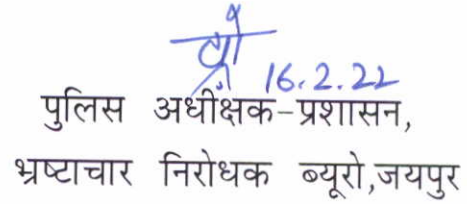 16.2.22
पुलिस अधीक्षक-प्रशासन,
भ्रष्टाचार निरोधक ब्यूरो,जयपुर